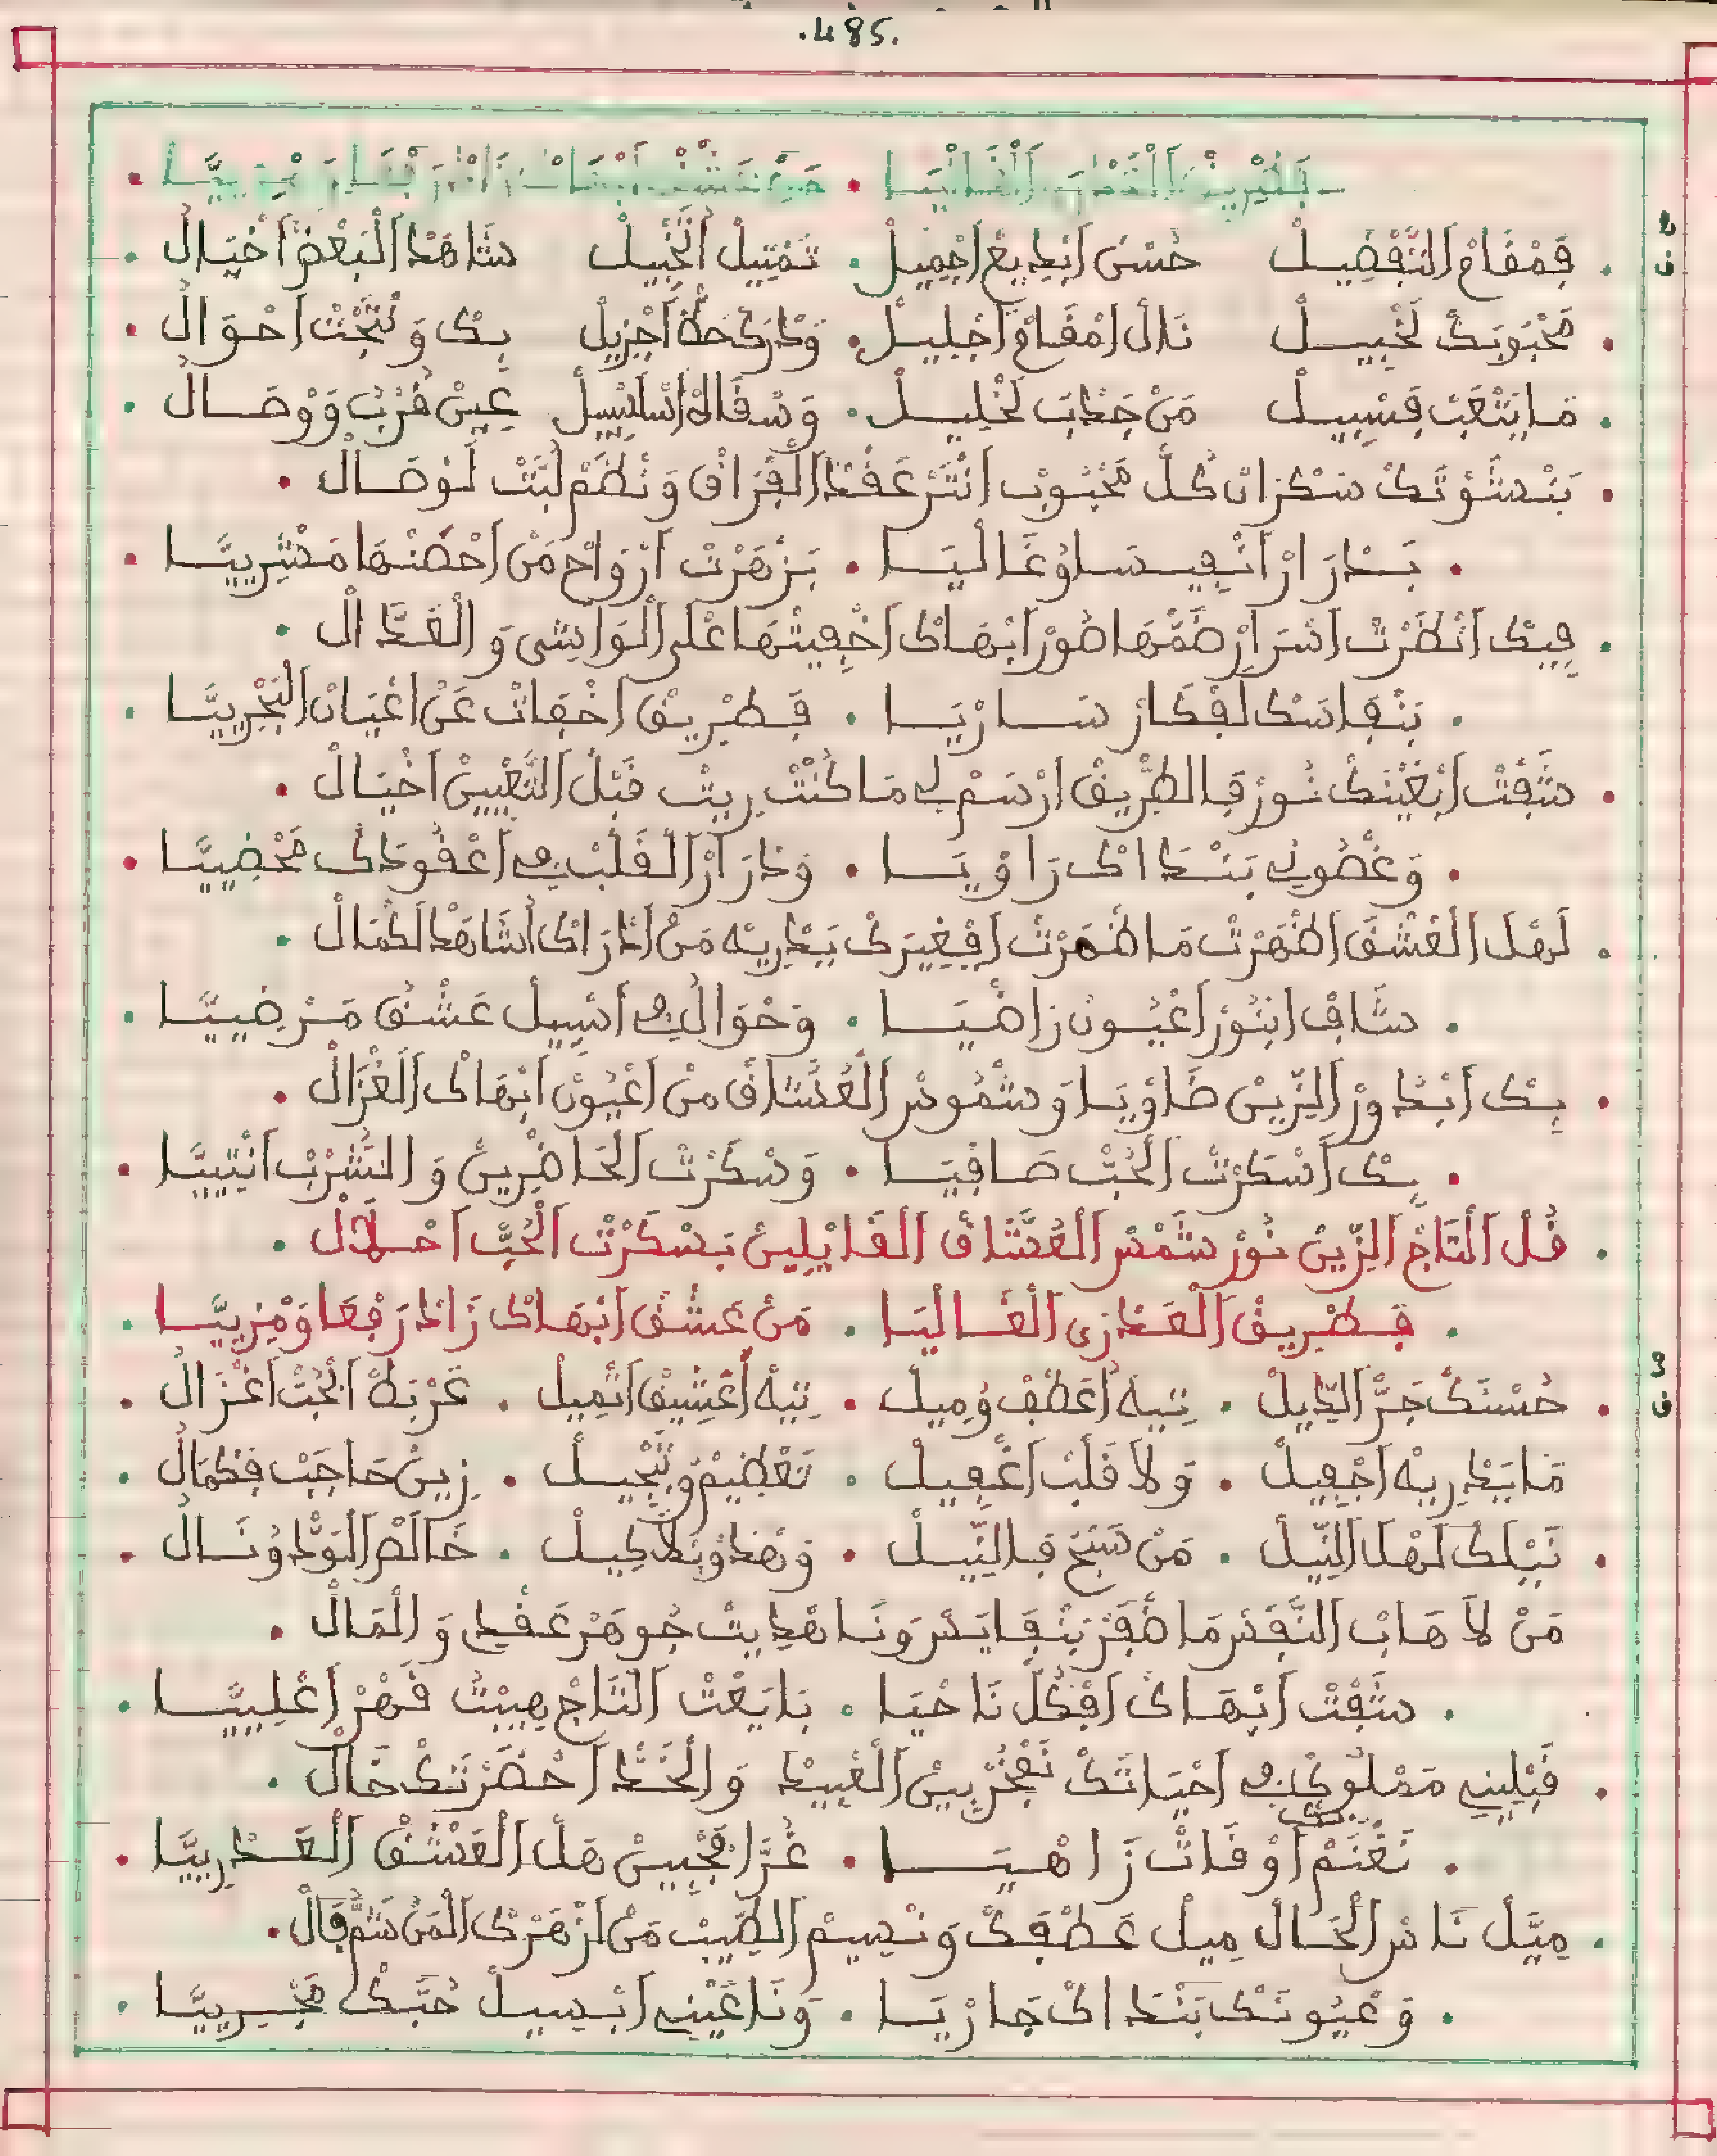 .485.
فَطْرِيقْ اَلْعَدْرَى اَلْغَالْيَا . مَنْ عَشْقْ اَبْهَاكْ زَادْ رَفْعَا وَمْزِيَّا .
2 ف
. فَمْقَامْ اَلتَّفْضِيلْ حُسْنَ اَبْدِيعْ اَجْمِيلْ . تَمْتِيلْ اَتْخْبِيلْ شَاهَدْ اَلْبَعْضْ اَخْيَالْ .
. مَحْبُوبَكْ لَخْبِيلْ نَالْ اَمْقَامْ اَجْلِيلْ . وَدْرَكْ حَظْ اَجْزِيلْ بِكْ وَنْتَجْتْ اَحْوَالْ .
. مَا بَتْعَبْ فَسْبِيلْ مَنْ جَذْبَ لَخْلِيلْ . وَسْقَاهْ اَسْلَسْبِيلْ عِينْ قُرْبْ وَوْصَالْ .
. بَنْشَوْتَكْ سَكْرَانْ كُلَّ مَحْبُوبْ اَنْثَرْ عَقْدْ اَلْفْرَاقْ وَنْظَمْ لُبَّتْ لَوْصَالْ .
. بَسْدَرَارْ اَنْفِيسَا وْغَالْيَا . بَزْهَرْتْ اَرْوَاحْ مَنْ اَحْضَنْهَا مَشْرِيَّا .
. فِيكْ اَنْظَرْتْ اَسْرَارْ ضَمّْهَا ضُورْ اَبْهَاكْ اَخْفِيتْهَا عْلَى اَلْوَاشِي وَالْعَدَّالْ .
. بَنْفَاسَكْ لَفْكَارْ سَارْيَا . فَطْرِيقْ اَخْفَاتْ عَنْ اَعْيَانْ اَلْبَحْرِيَّا .
. شَفْتْ اَبْعَيْنَكْ نُورْ فَالطْرِيقْ اَرْسَمْ لِي مَا كُنْتْ رِيتْ قَبْلْ اَلتَّعْيِينْ اَخْيَالْ .
. وَغْصُونِي بَنْدَاكْ رَاوْيَا . وَدْرَارْ اَلْقَلْبْ فِي اَعْقُودَكْ مَحْضِيَّا .
. لَهْلْ اَلْعَشْقْ اَظْهَرْتْ مَا ظْهَرْتْ اَفْغِيرَكْ يَدْرِيهْ مَنْ اَدْرَاكْ اَشَاهَدْ لَكْمَالْ .
. شَافْ اَبْنُورْ اَعْيُونْ رَاضْيَا . وَحْوَالِي فِي اَسْبِيلْ عَشْقْ مَرْضِيَّا .
. بِكْ اَبْدُورْ اَلزِّينْ ضَاوْيَا وَشْمُوسْ اَلْعُشَّاقْ مَنْ اَعْيُونْ اَبْهَاكْ اَلْغْزَالْ .
. بِكْ اَسْكَرْتْ اَلْحُبّْ صَافْيَا . وَسْكَرْتْ اَلْحَاضْرِينْ وَالشُّرْبْ اَنْتِيَّا .
. قُلْ اَلتَّاجْ اَلزِّينْ نُورْ شَمْسْ اَلْعُشَّاقْ اَلْقَايْلِينْ بَسْكَرْتْ اَلْحُبّْ اَحْلَالْ .
. فَطْرِيقْ اَلْعَدْرَى اَلْغَالْيَا . مَنْ عَشْقْ اَبْهَاكْ زَادْ رَفْعَا وَمْزِيَّا .
3 ف
. حُسْنَكْ جَرّْ اَلدِّيلْ . تِيهْ اَعْطَفْ وُمِيلْ . تِيهْ اَعْشِيقْ اَتْمِيلْ . عَرْبَطْ اَلْحُبّْ اَغْزَالْ .
مَا يَدْرِيهْ اَجْفِيلْ . وَلَا قَلْبْ اَغْفِيلْ . تَعْظِيمْ وُتَبْجِيلْ . زِينْ حَاجَبْ فَكْمَالْ .
. نَيْلَكْ لَهْلْ اَلنِّيلْ . مَنْ سَبَحْ فَالنِّيلْ . وَهْدْ وُبَلَا كِيلْ . خَالَصْ اَلْوَدّْ وُنَالْ .
مَنْ لَا هَابْ اَلنَّفْسْ مَا ظْفَرْ بَنْفَايَسْ وَنَا هْدِيتْ جُوهَرْ عَقْلِي وَالْمَالْ .
. شَفْتْ اَبْهَاكْ اَفْكُلّْ نَاحْيَا . بَايَعْتْ اَلتَّاجْ هِيبْتُ قَهْرْ اَعْلِيَّا .
. قَبْلِينِي مَمْلُوكْ فِي اَحْيَاتَكْ نَفْخُرْ بِينْ اَلْعْبِيدْ وَالْخَدّْ اَحْضَرْتَكْ خَالْ .
. نَغْنَمْ اَوْقَاتْ زَاهْيَا . غُرَّا فَجْبِينْ هَلْ اَلْعَشْقْ اَلْعَدْرِيَّا .
. مِيَّلْ نَاسْ اَلْحَالْ مِيلْ عَطْفَكْ وَنْسِيمْ اَلطِّيبْ مَنْ اَزْهَرْكْ اَلْمَنْ شَمّْ فَالْ .
. وَعْيُونَكْ بَنْدَاكْ جَارْيَا . وَنَا عَيْنِي اَبْسِيلْ حُبَّكْ مَجْرِيَّا .